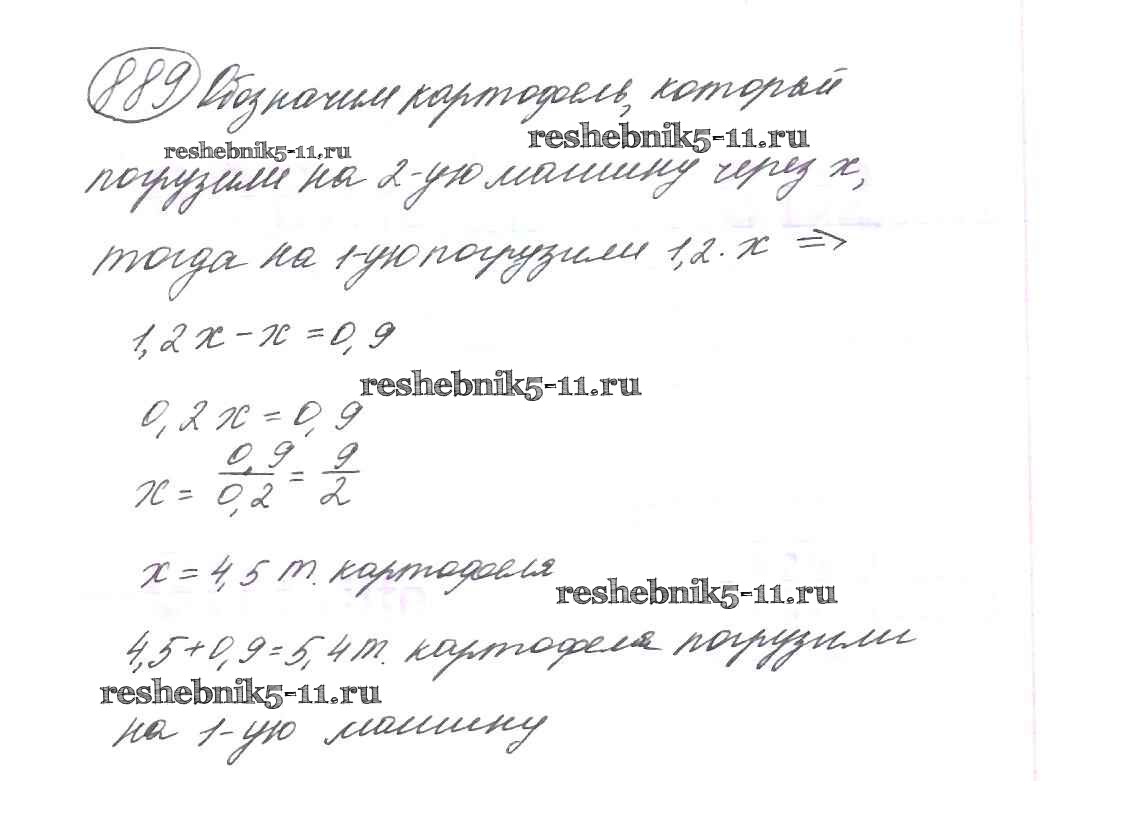 889 Обозначим картофель, который
reshebnik5-11.ru reshebnik5-11.ru
погрузили на 2-ую машину через x,
тогда на 1-ую погрузили 1,2·x =>
1,2x - x = 0,9
reshebnik5-11.ru
0,2x = 0,9
x = 0,9/0,2 = 9/2
x = 4,5 т. картофеля
reshebnik5-11.ru
4,5+0,9=5,4т. картофеля погрузили
reshebnik5-11.ru
на 1-ую машину